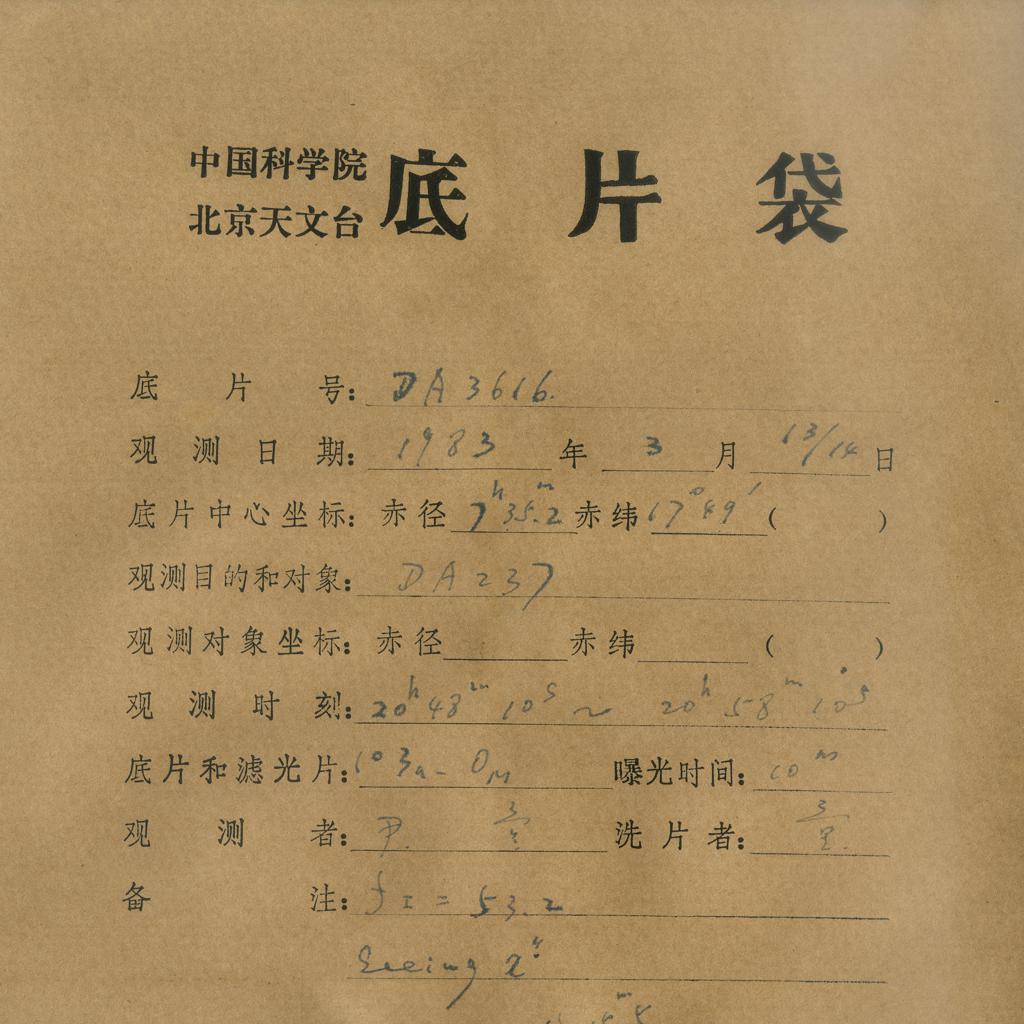 中国科学院
北京天文台
底片袋
底片号: DA3616.
观测日期: 1983年3月13/14日
底片中心坐标: 赤径7ʰ35.ᵐ2赤纬17°49′( )
观测目的和对象: DA237
观测对象坐标: 赤径 赤纬 ( )
观测时刻: 20ʰ48ᵐ10ˢ ~ 20ʰ58ᵐ10ˢ
底片和滤光片: 103a-O 曝光时间: 10ᵐ
观测者: 尹. 洗片者:
备注: = 53.2
Seeing 2″